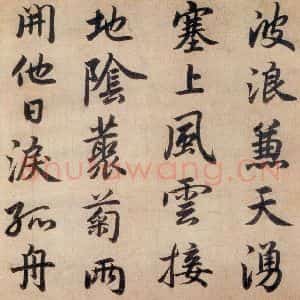 波浪兼天湧
塞上風雲接
地陰叢菊兩
開他日淚孤舟
shufawang.CN